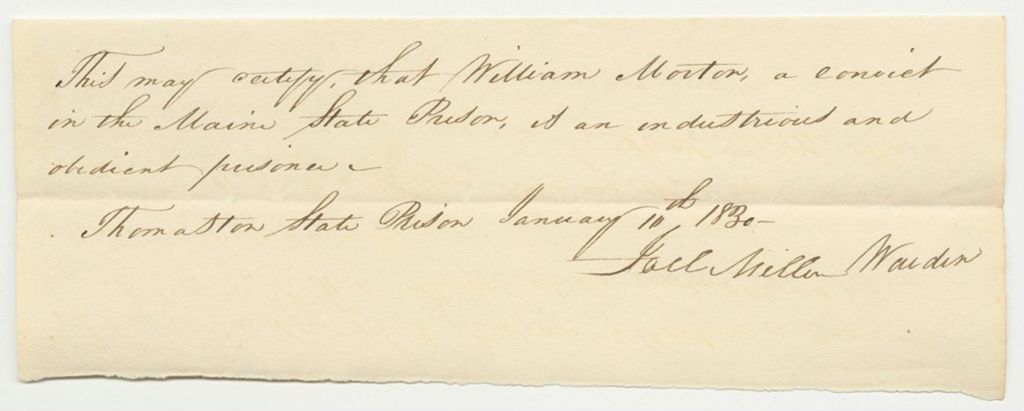 This may certify, that William Morton, a convict
in the Maine State Prison, is an industrious and
obedient prisoner
Thomaston State Prison January 10th 1830
Joel Miller Warden